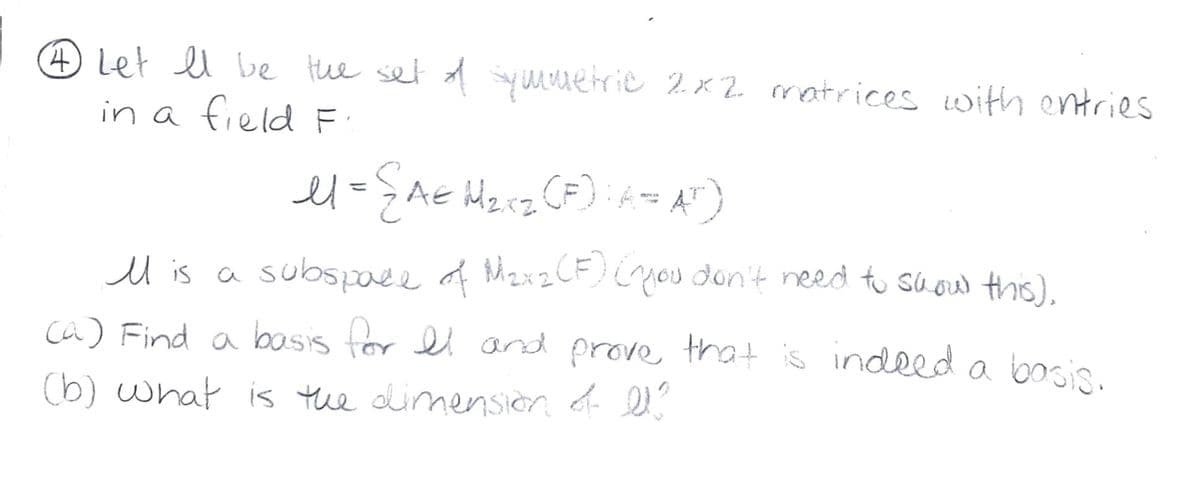 ④ Let U be the set of symmetric 2x2 matrices with entries
in a field F.
U = {A∈ M₂ₓ₂ (F) : A = Aᵀ)
U is a subspace of M₂ₓ₂(F) (you don't need to show this).
(a) Find a basis for U and prove that is indeed a basis.
(b) What is the dimension of U?